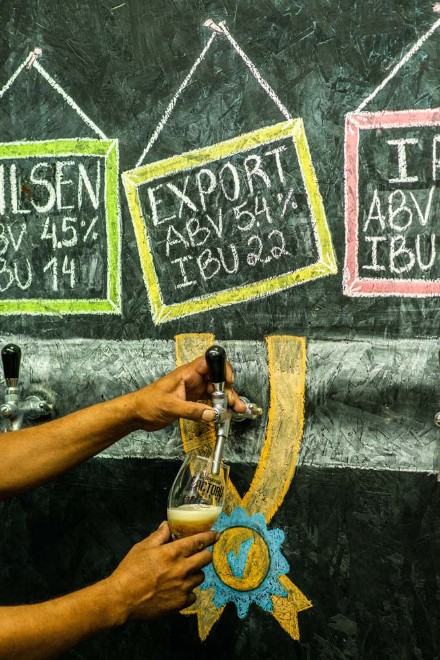 ILSEN
BV 4.5%
BU 14
EXPORT
ABV 5.4%
IBU 22
ABV
IBU